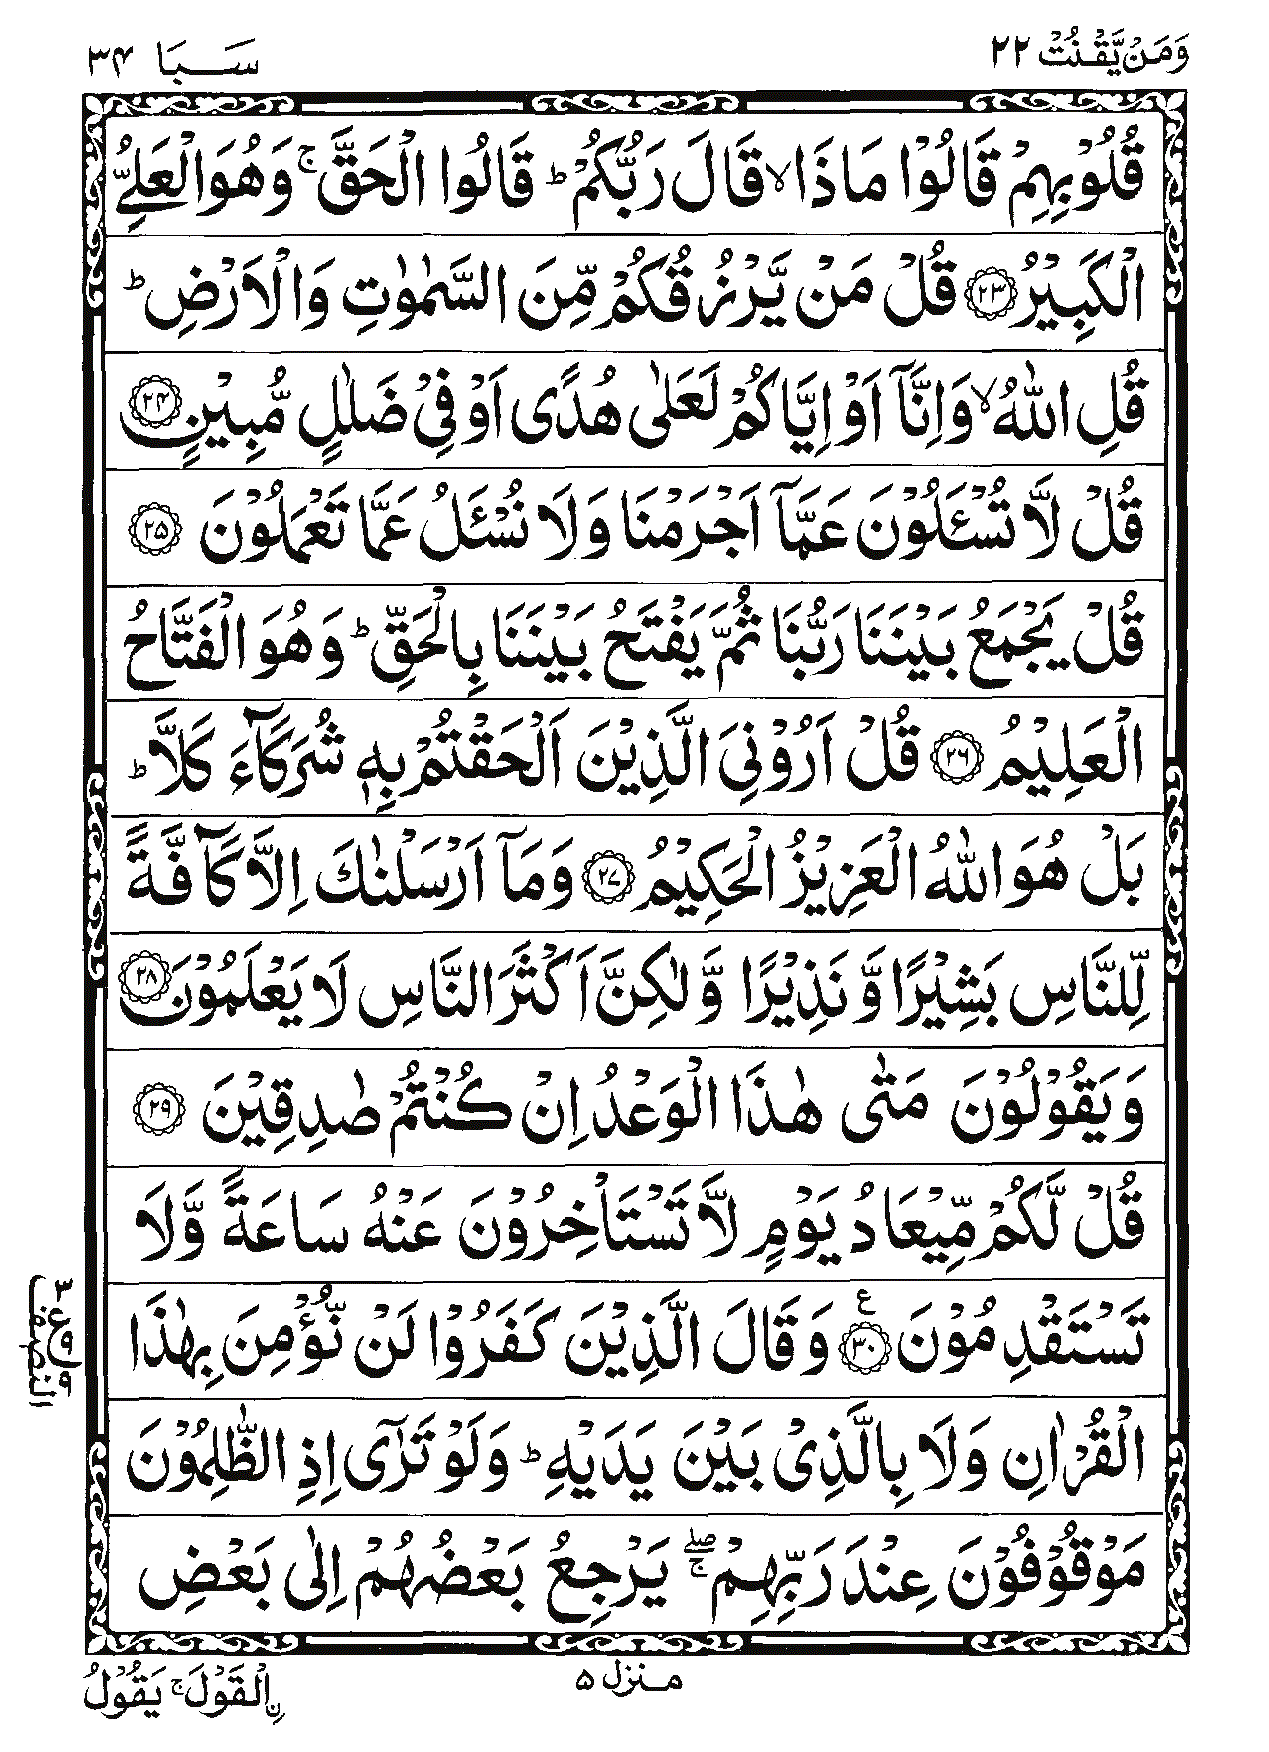 وَمَنْ يَّقْنُتْ ٢٢
سَــبَا ٣٤
قُلُوْبِهِمْ قَالُوْا مَاذَا ۙ قَالَ رَبُّكُمْ ؕ قَالُوا الْحَقَّ ۚ وَهُوَ الْعَلِيُّ
الْكَبِيْرُ ﴿۲۳﴾ قُلْ مَنْ يَّرْزُقُكُمْ مِّنَ السَّمٰوٰتِ وَالْاَرْضِ ؕ
قُلِ اللّٰهُ ۙ وَاِنَّاۤ اَوْ اِيَّاكُمْ لَعَلٰى هُدًى اَوْ فِيْ ضَلٰلٍ مُّبِيْنٍ ﴿۲۴﴾
قُلْ لَّا تُسْـَٔلُوْنَ عَمَّاۤ اَجْرَمْنَا وَلَا نُسْـَٔلُ عَمَّا تَعْمَلُوْنَ ﴿۲۵﴾
قُلْ يَجْمَعُ بَيْنَنَا رَبُّنَا ثُمَّ يَفْتَحُ بَيْنَنَا بِالْحَقِّ ؕ وَهُوَ الْفَتَّاحُ
الْعَلِيْمُ ﴿۲۶﴾ قُلْ اَرُوْنِيَ الَّذِيْنَ اَلْحَقْتُمْ بِهٖ شُرَكَآءَ كَلَّا ؕ
بَلْ هُوَ اللّٰهُ الْعَزِيْزُ الْحَكِيْمُ ﴿۲۷﴾ وَمَاۤ اَرْسَلْنٰكَ اِلَّا كَآفَّةً
لِّلنَّاسِ بَشِيْرًا وَّنَذِيْرًا وَّلٰكِنَّ اَكْثَرَ النَّاسِ لَا يَعْلَمُوْنَ ﴿۲۸﴾
وَيَقُوْلُوْنَ مَتٰى هٰذَا الْوَعْدُ اِنْ كُنْتُمْ صٰدِقِيْنَ ﴿۲۹﴾
قُلْ لَّكُمْ مِّيْعَادُ يَوْمٍ لَّا تَسْتَاْخِرُوْنَ عَنْهُ سَاعَةً وَّلَا
تَسْتَقْدِمُوْنَ ﴿۳۰﴾ ع وَقَالَ الَّذِيْنَ كَفَرُوْا لَنْ نُّؤْمِنَ بِهٰذَا
الْقُرْاٰنِ وَلَا بِالَّذِيْ بَيْنَ يَدَيْهِ ؕ وَلَوْ تَرٰۤى اِذِ الظّٰلِمُوْنَ
مَوْقُوْفُوْنَ عِنْدَ رَبِّهِمْ ۖۚ يَرْجِعُ بَعْضُهُمْ اِلٰى بَعْضِ
ࣙالْقَوْلَ ۚ يَقُوْلُ
منزل ۵